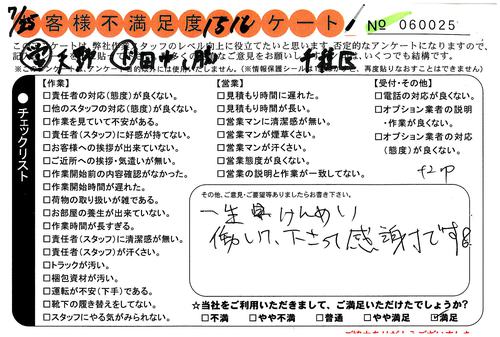 7/25 お客様不満足度1512ケート! No 060025
このアンケートは、弊社作業スタッフのレベル向上に役立てたいと思います。否定的なアンケートになりますので、
【作業】
□責任者の対応(態度)が良くない。
□他のスタッフの対応(態度)が良くない。
□作業を見ていて不安がある。
□責任者(スタッフ)に好感が持てない。
□お客様への挨拶が出来ていない。
□ご近所への挨拶・気遣いが無い。
□作業開始前の内容確認がなかった。
□作業開始時間が遅れた。
□荷物の取り扱いが雑である。
□お部屋の養生が出来ていない。
□作業時間が長すぎる。
□責任者(スタッフ)に清潔感が無い。
□責任者(スタッフ)が汗くさい。
□トラックが汚い。
□梱包資材が汚い。
□運転が不安(下手)である。
□靴下の履き替えをしてない。
□スタッフにやる気がみられない。
【営業】
□見積もり時間に遅れた。
□見積もり時間が長い。
□営業マンに清潔感が無い。
□営業マンが煙草くさい。
□営業マンが汗くさい。
□営業態度が良くない。
□営業の説明と作業が一致してない。
【受付・その他】
□電話の対応が良くない。
□オプション業者の説明
・作業が良くない。
□オプション業者の対応
(態度)が良くない。
チェックリスト
その他、ご意見・ご要望等ありましたらお書き下さい。
一生けんめい
働いて下さって感謝です。
☆当社をご利用いただきまして、ご満足いただけたでしょうか?
□不満 □やや不満 □普通 □やや満足 ☑満足